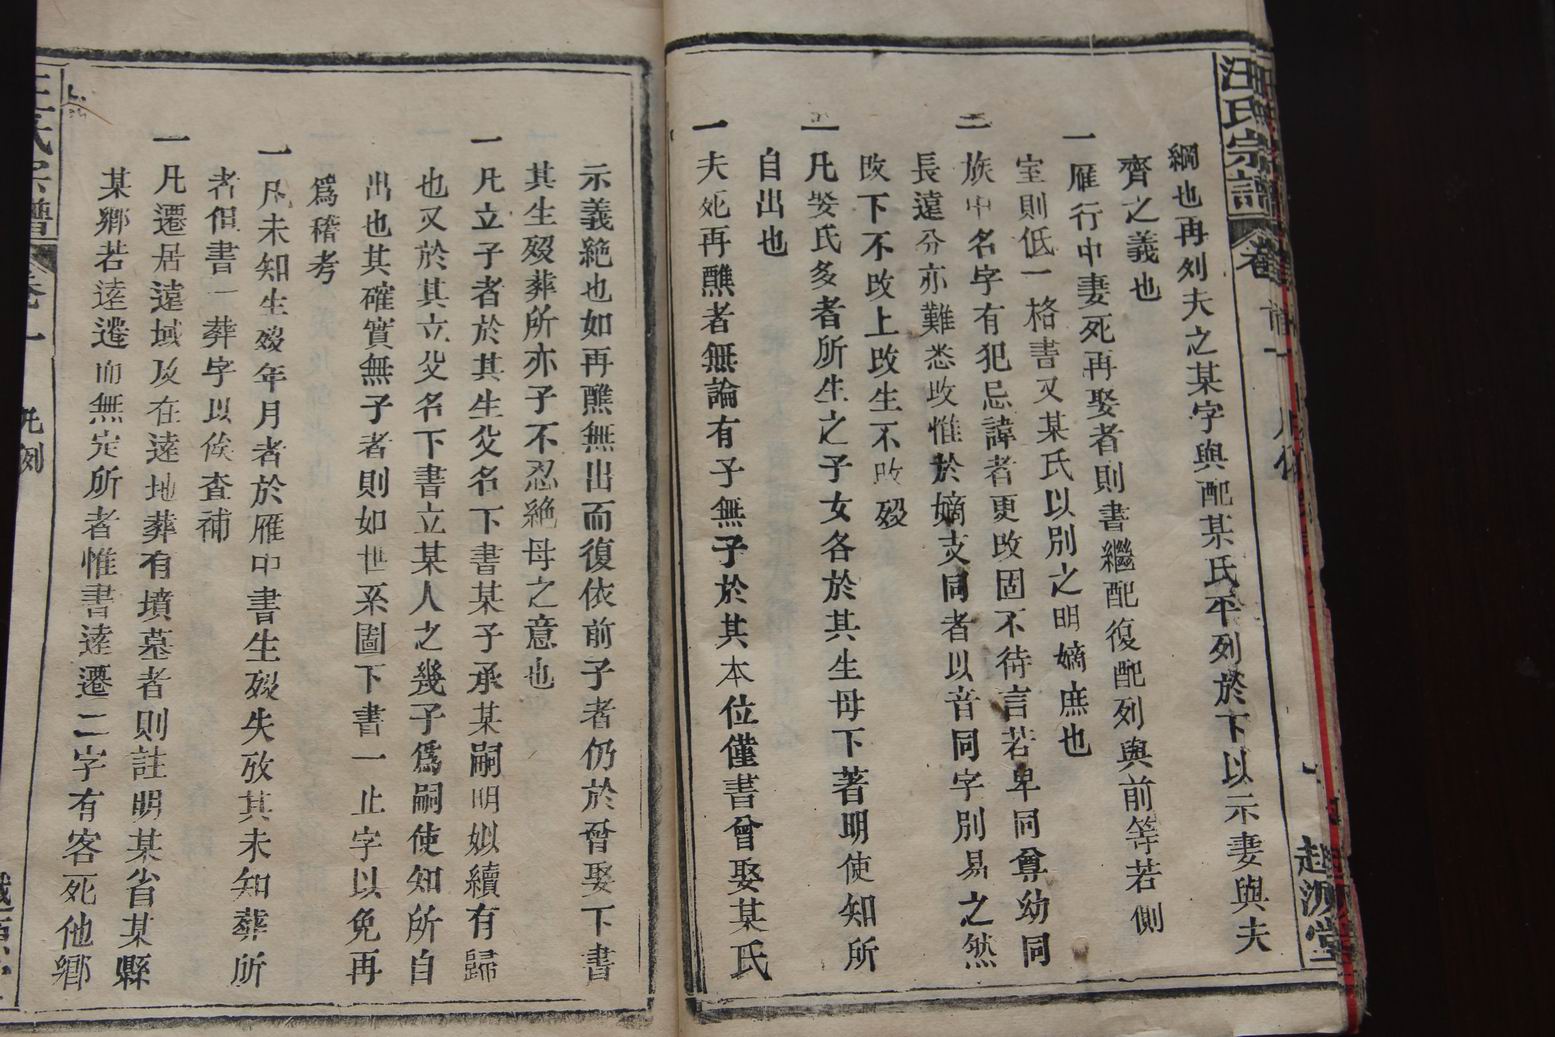 汪氏宗譜
卷
趙源堂
綱也再列夫之某字與配某氏平列於下以示妻與夫
齊之義也
一雁行中妻死再娶者則書繼配復配列與前等若側
室則低一格書又某氏以別之明嫡庶也
一族中名字有犯忌諱者更改固不待言若卑同尊幼同
長遠分亦難悉改惟於嫡支同者以音同字別易之然
改下不改上改生不改歿
一凡娶氏多者所生之子女各於其生母下著明使知所
自出也
一夫死再醮者無論有子無子於其本位僅書曾娶某氏
示義絶也如再醮無出而復依前子者仍於晉娶下書
其生歿葬所亦子不忍絶母之意也
一凡立子者於其生父名下書某子承某嗣明姒續有歸
也又於其立父名下書立某人之幾子爲嗣使知所自
出也其確實無子者則如世系圖下書一止字以免再
爲稽考
一凡未知生歿年月者於雁中書生歿失放其未知葬所
者但書一葬字以俟查補
一凡遷居遠域及在遠地葬有墳墓者則註明某省某縣
某鄉若遠遷而無定所者惟書遠遷二字有客死他鄉
卷一
凡例